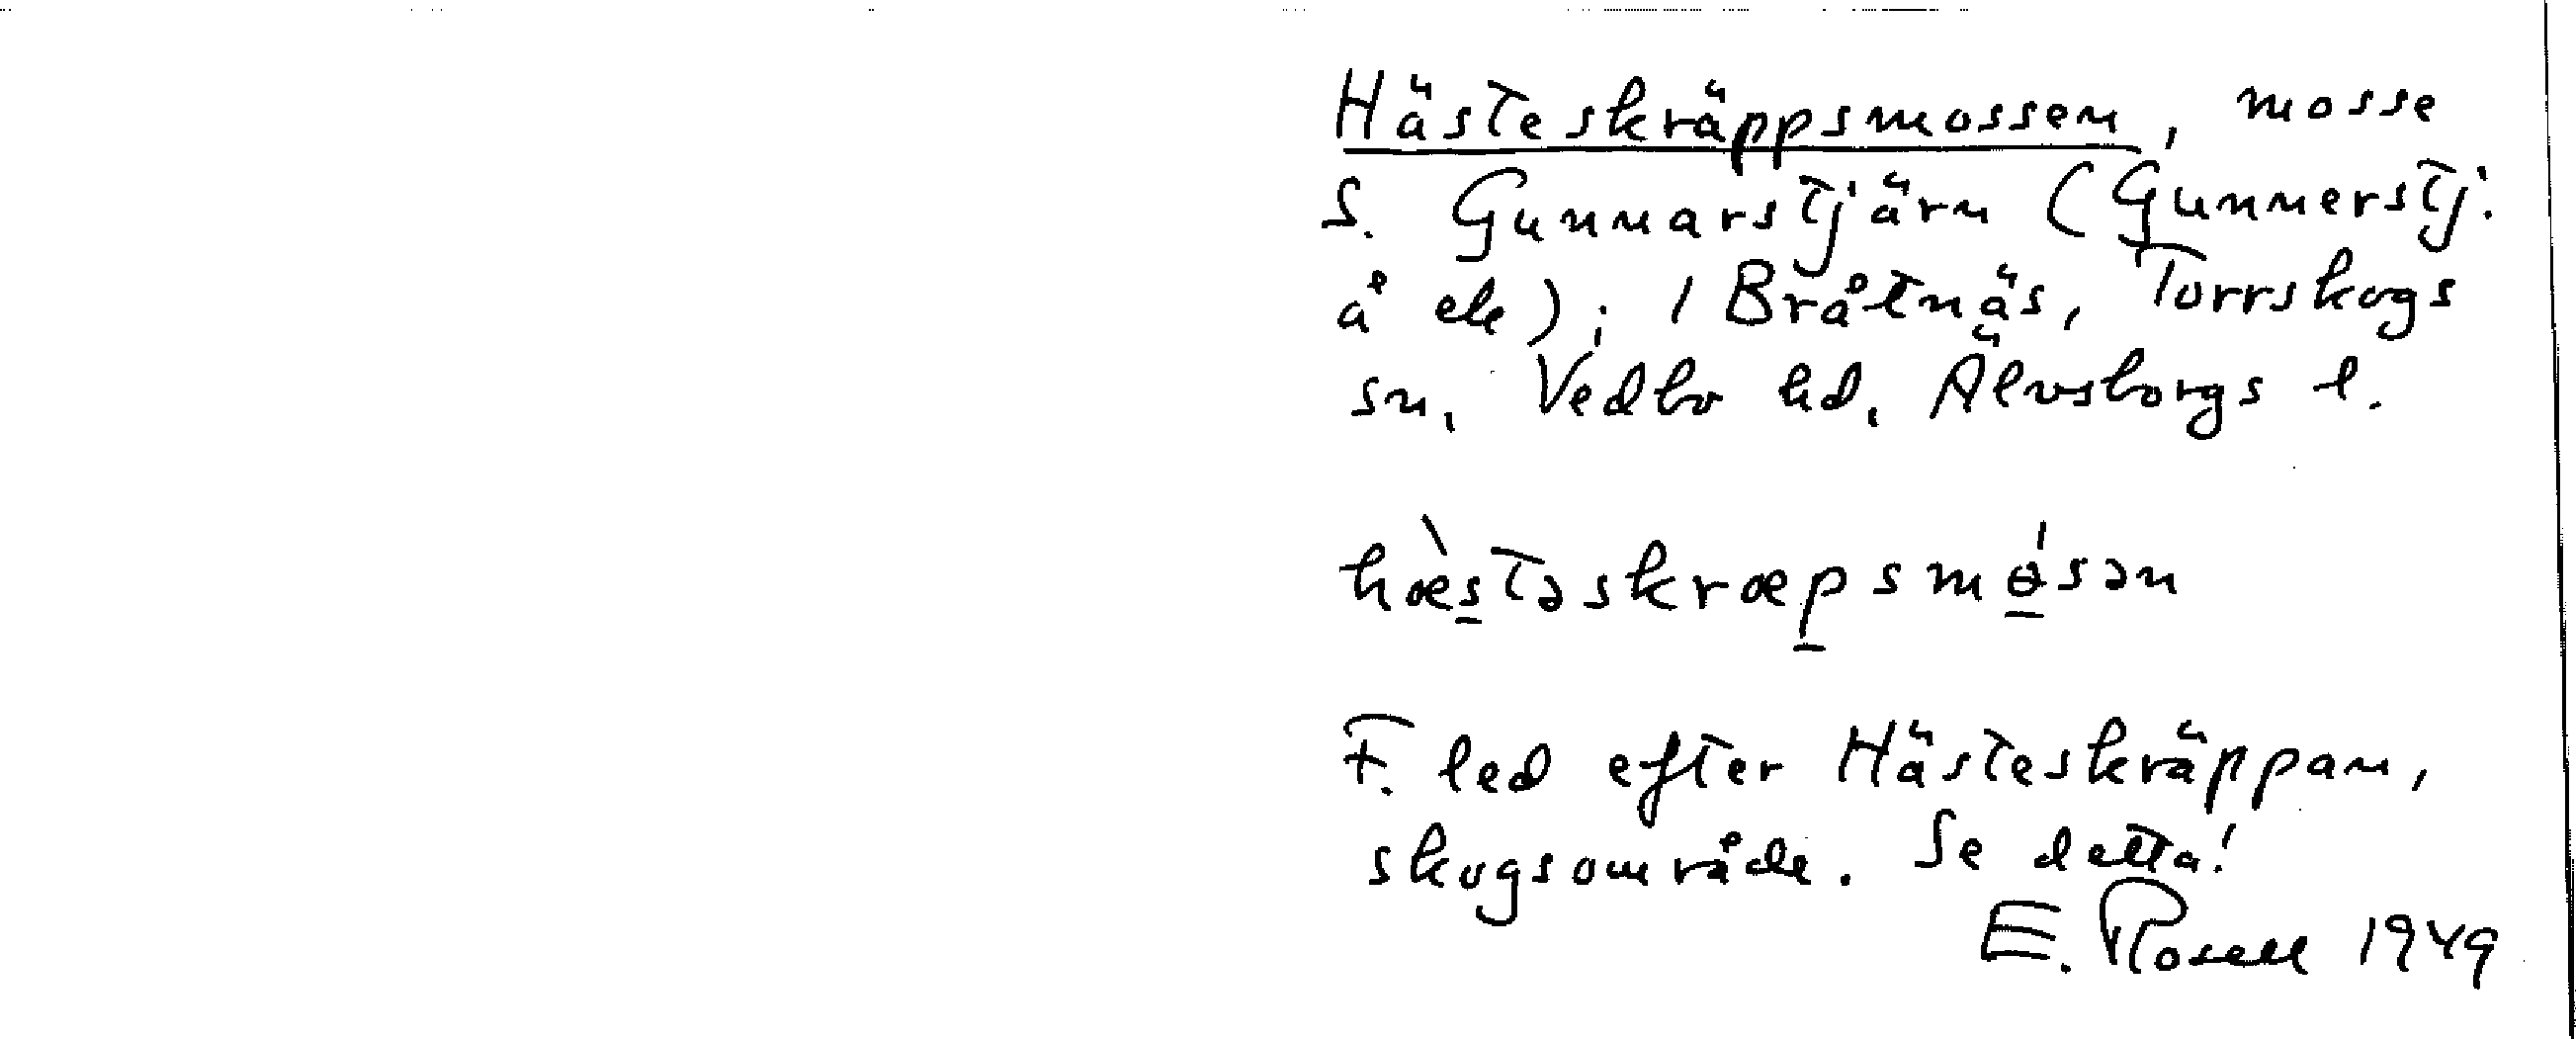 Hästeskräppsmossen, mosse
S. Gunnarstjärn (Gunnerstj.
å ek); 1 Bråtnäs, Torrskogs
sn, Vedbo hd, Älvsborgs l.
hæ̀stəskræpsmɵ́sən
F. led efter Hästeskräppan,
skogsområde. Se detta!
E. Rosell 1949